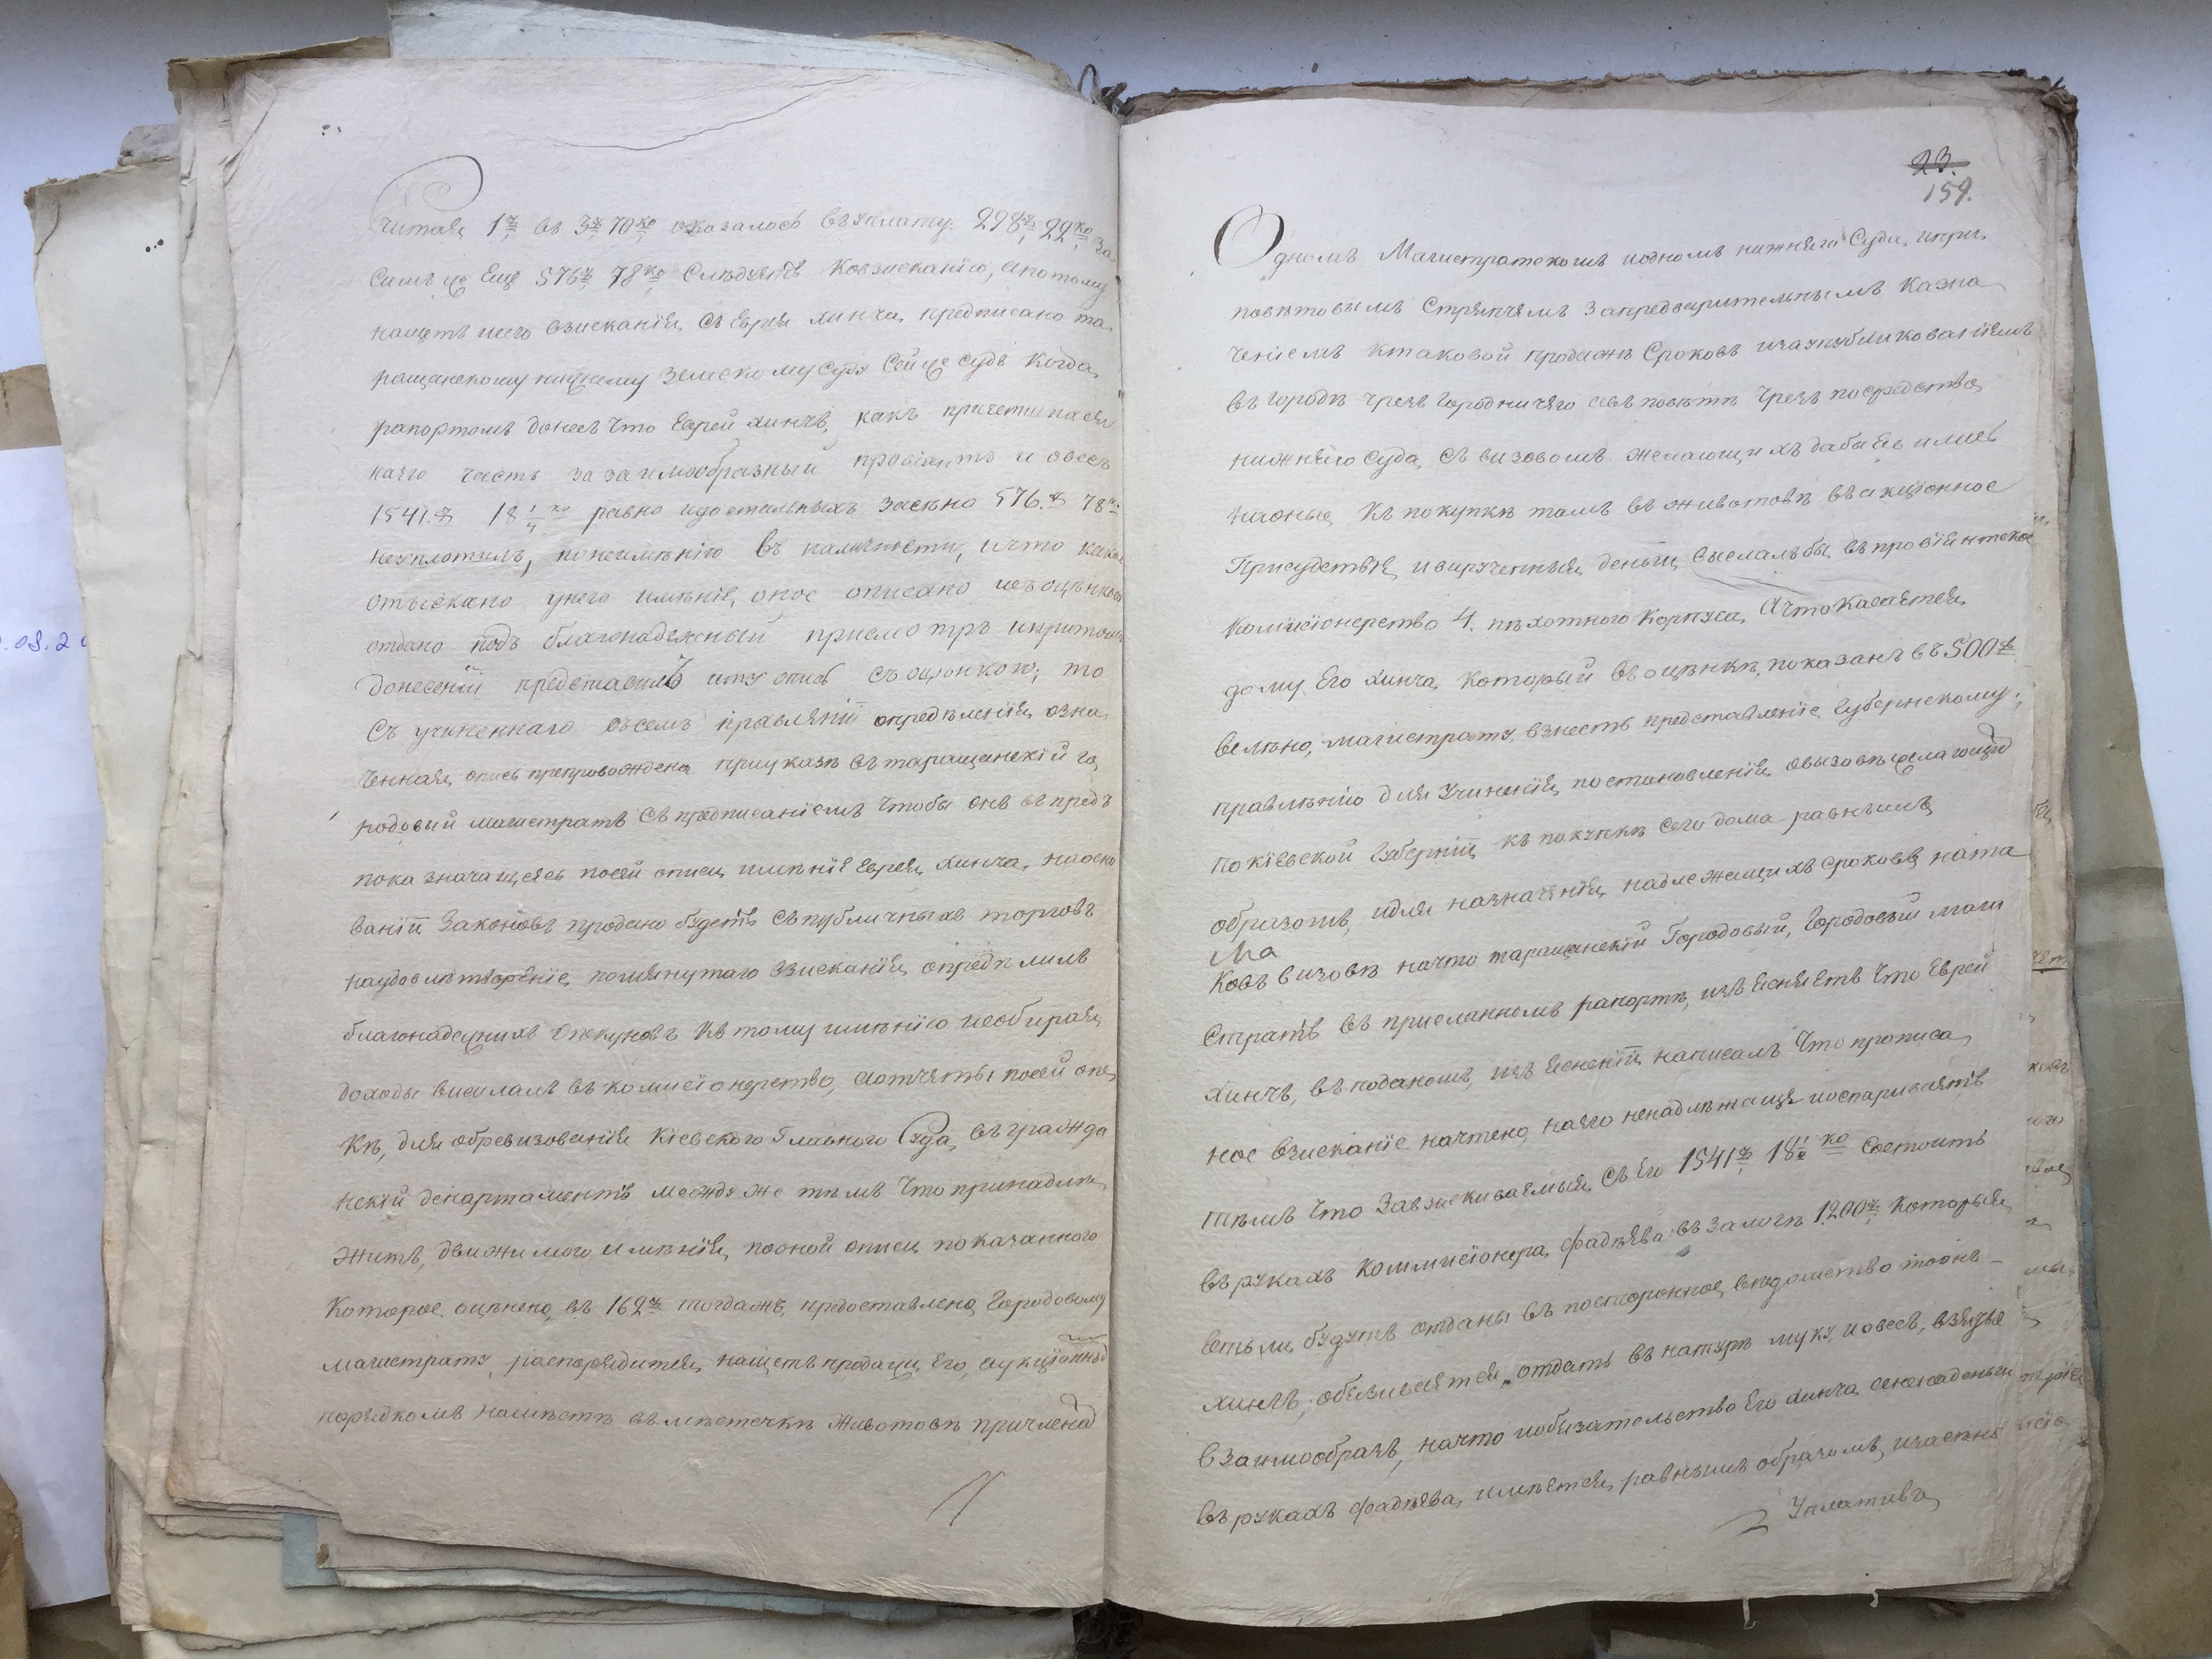 читая 1 р. въ 3 р. 70 ко. оказалось въ уплату 298 р. 22 ко. за
симъ же еще 576 р. 78 ко. следуетъ ко взисканію, а потому
нащетъ него взисканія съ еврея Хинча предписано та
ращанскому нижнему земскому суду сей же судъ когда
рапортомъ донесъ что еврей Хинчъ, какъ причетшпаея
наяго часть за заимообразный провіянтъ и овесъ
1541 р. 18 1/4 ко равно и достальныхъ засено 576 р. 78 ко
неуплотилъ, понеимѣнію въ наличности, и что какое
отыскано унего имѣніе, оное описано исъ оценкою
отдано подъ благонадежный присмотръ и притомъ
донесеніи представилъ иту опись съ оценкою; то
съ учиненнаго въ семъ правленіи определенія озна
ченная опись препровождена приуказѣ въ таращанскій го
родовый магистратъ съ предписаніемъ чтобы онъ въпредъ
пока значащеясь посей описи имѣніе еврея Хинча, наосно
ваніи законовъ продано будетъ съ публичныхъ торговъ
наудовлетвореніе помянутаго взисканія определилъ
благонадежнихъ опекуновъ къ тому имѣнію исобирая
доходы висилалъ въ комисіонерство, а отчяты посей опе
кѣ, для обревизованія кіевского Главного Суда въ гражда
нскій департаментъ между же темъ что принадле
житъ, движимого имѣнія, пооной описи показанного
которое оценено въ 162 р. тогдажъ, предоставлено Городовому
магистрату распорядится нащетъ продажи его, аукціоннымъ
порядкомъ наместѣ въ местечкѣ Животовѣ причлена
23.
159.
Одномъ Магистратскомъ и одномъ нижняго Суда, ипри
поветовымъ Стряпчемъ за предварительнымъ назна
ченіемъ ктаковой продажѣ сроковъ изаупубликованіемъ
въ городѣ чрезъ городничяго авъ поветѣ чрезъ посредство
нижняго Суда, съ визовомъ желающихъ дабы явились
наоные къ покупкѣ тамъ въ Животовѣ въ акціонное
Присудствіе, и вирученныя деньги выслалъбы въ провіянтское
комисіонерство 4. пехотного Корпуса, а что касается
дому его Хинча, который въ оценкѣ показанъ въ 500 р.
велено, магистрату взнесть представленіе Губернскому
правленію для учиненія постановленія овызовѣ желающихъ
покіевской Губерніи къ покупкѣ сего дома равнымъ
образомъ, идля назначенія надлежащихъ сроковъ ната
ковъ визовъ начто таращанскій Городовый, Городовый маги
Ма
стратъ въ присланномъ рапортѣ изъясняетъ что еврей
Хинчъ, въ поданомъ изъясненіи написалъ что прописа
ное взисканіе начтено наяго ненадлежаще иоспариваетъ
темъ что завзискиваемыя съ его 1541 р. 18 1/4 ко состоитъ
въ рукахъ коммисіонера Фадеева въ залогѣ 1200 р. которыя
естьли будутъ отданы въ постороннее ведомство тоонъ
Хинчъ, обязивается, отдать въ натурѣ муку и овесъ, взятые
взаимообразъ, начто иобязательство его Хинча аненаденьги
въ рукахъ Фадеева, имеется, равнымъ образомъ, изасено
Уплатива